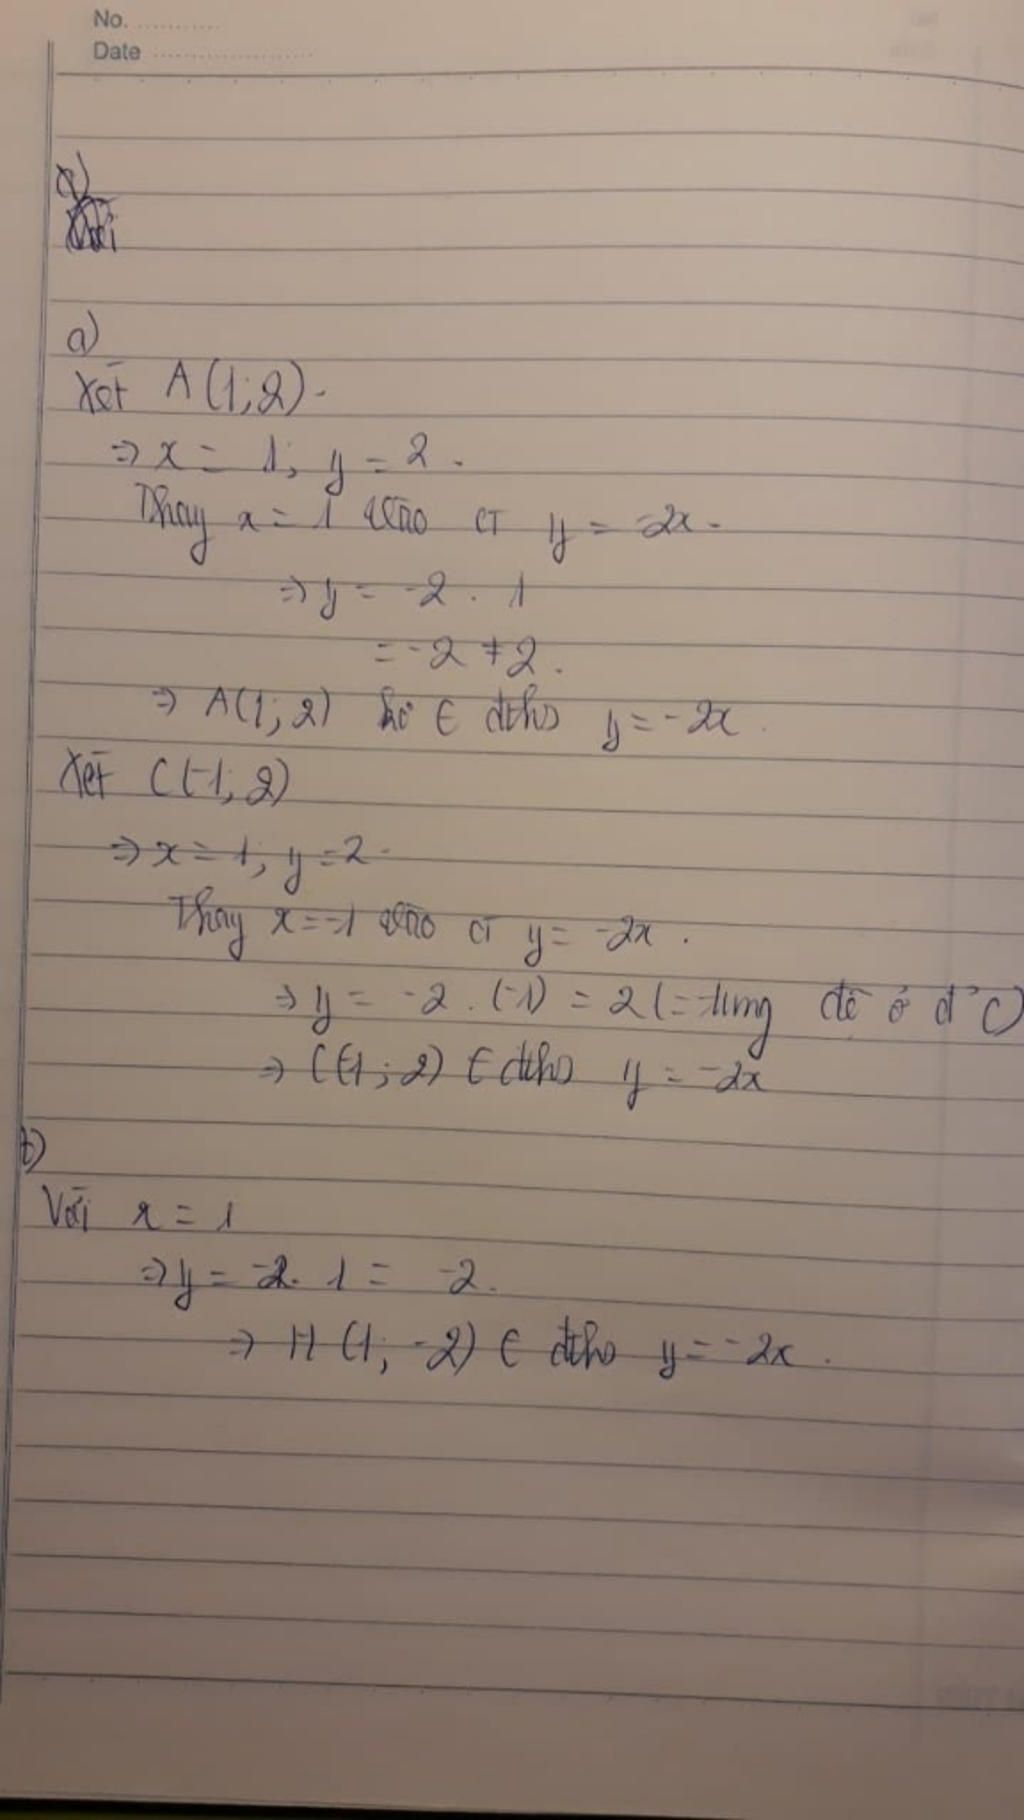 No. ............
Date .......................
a)
a)
Xét A(1;2).
⇒ x = 1; y = 2.
Thay x = 1 vào CT y = -2x.
⇒ y = -2 . 1
= -2 ≠ 2.
⇒ A(1; 2) ko ∈ đths y = -2x.
Xét C(-1; 2)
⇒ x = 1; y = 2.
Thay x = -1 vào CT y = -2x.
⇒ y = -2 . (-1) = 2 (= tung độ ở đ' C)
⇒ C(-1; 2) ∈ đths y = -2x
b)
Với x = 1
⇒ y = -2. 1 = -2.
⇒ H (1; -2) ∈ đths y = -2x.